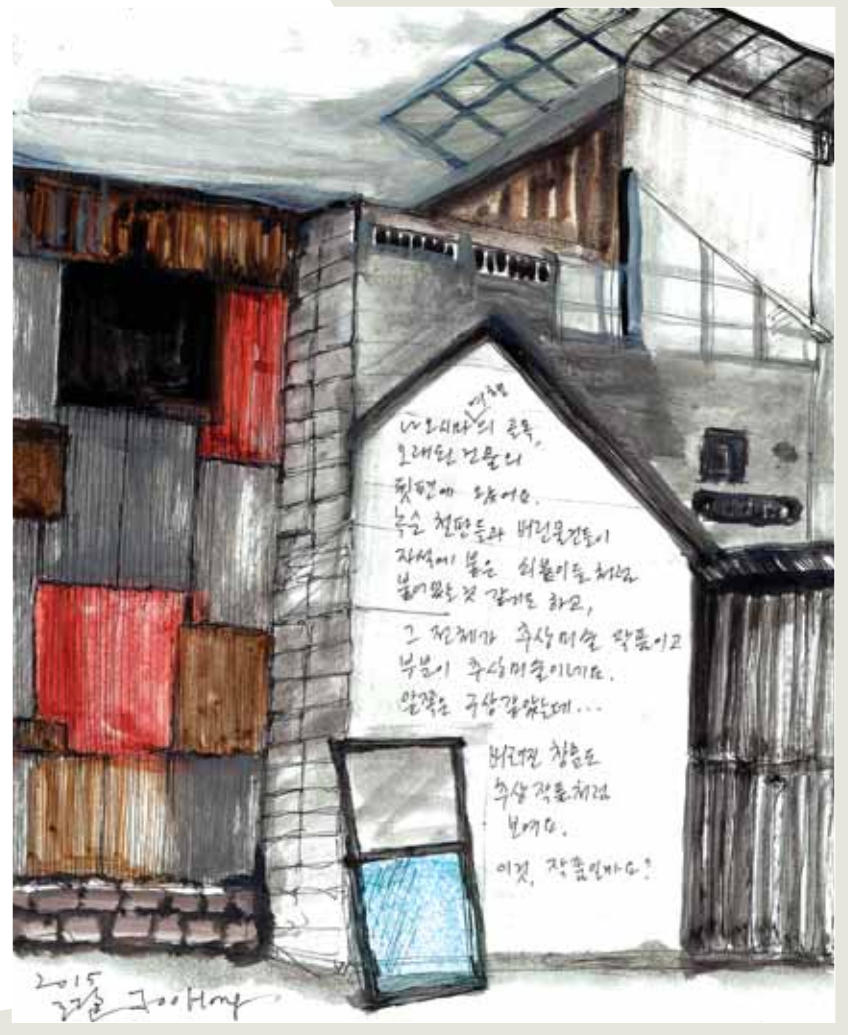 나오시마 여행의 골목,
오래된 건물의
뒷편에 왔어요.
녹슨 철판들과 버린물건들이
자석에 붙은 쇠붙이들처럼
붙어있는것 같기도 하고,
그 전체가 추상미술 작품이고
부분이 추상미술이네요.
앞쪽은 구상같았는데...
버려진 창틀도
추상작품처럼
보여요.
이것, 작품일까요?
2015